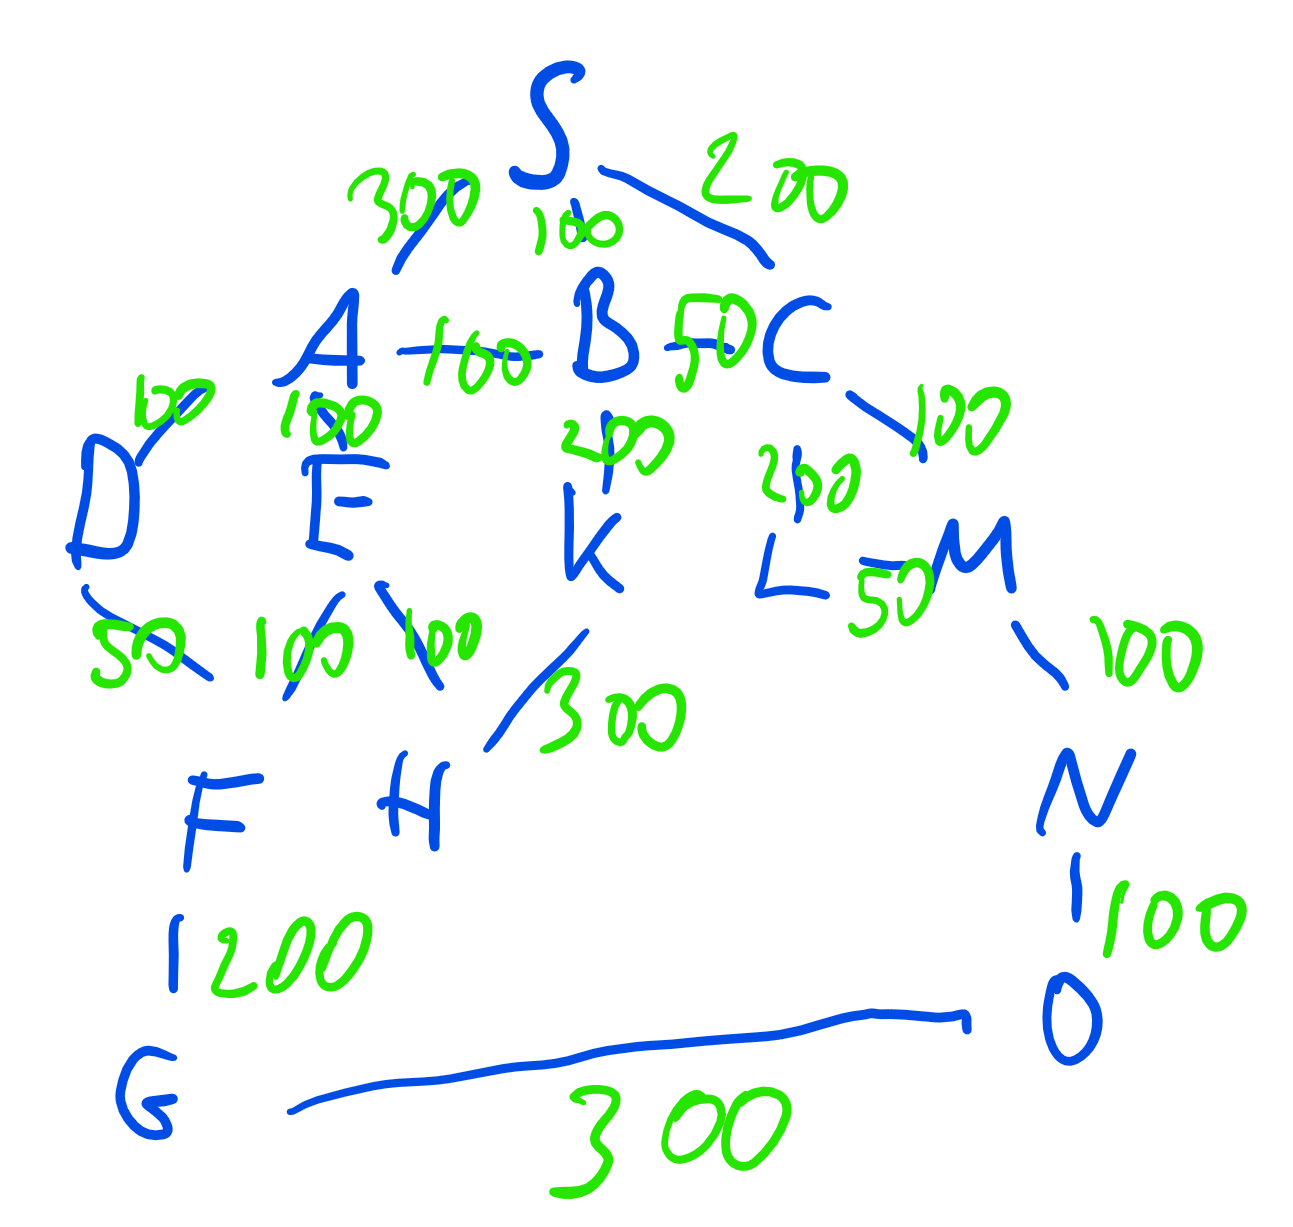 S
300 100 200
A 100 B 50 C
100 100 200 200 100
D E K L 50 M
50 100 100 300 100
F H N
200 100
G O
300